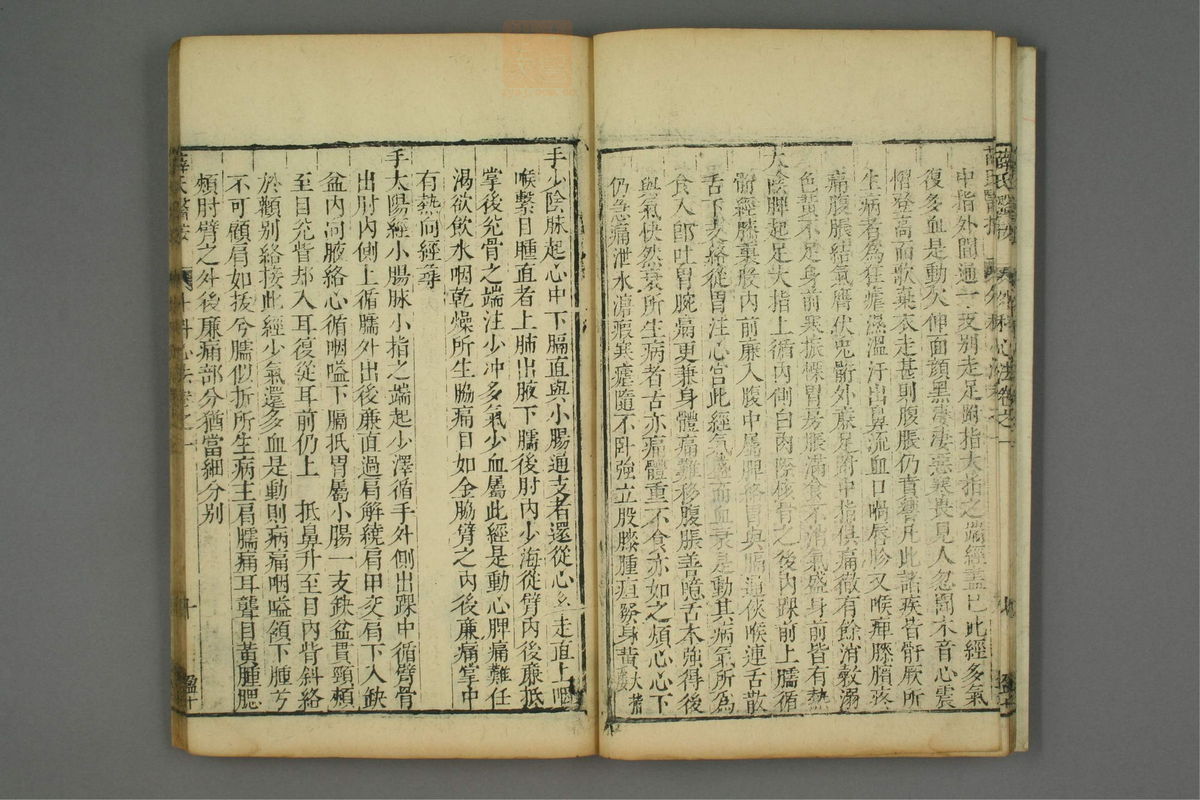 薛氏醫按 外科心法卷之一
中指外間通一支別走足跗指大指之端經盡已此經多氣
復多血是動欠伸面顏黑凄凄惡寒畏見人忽聞木音心震
惜登高而歌棄衣走甚則腹脹仍賁響凡此諸疾皆骭厥所
生病者為狂瘧濕溫汗出鼻流血口喎唇胗又喉痺膝臏疼
痛腹脹結氣膺伏兔骭外廉足跗中指俱痛徹有餘消穀溺
色黃不足身前寒振慄胃房脹滿食不消氣盛身前皆有熱
太陰脾起足大指上循內側白肉際核骨之後內踝前上臑循
骭經膝裏股內前廉入腹中屬脾絡胃與膈通俠喉連舌散
舌下支絡從胃注心宮此經氣盛而血衰是動其病氣所為
食入即吐胃脘痛更兼身體痛難移腹脹善噫舌本強得後
與氣快然衰所生病者舌亦痛體重不食亦如之煩心心下
仍急痛泄水溏瘕寒瘧隨不臥強立股膝腫疽發身黃大指
手少陰脉起心中下膈直與小腸通支者還從心系走直上咽
喉繫目瞳直者上肺出腋下臑後肘內少海從臂內後廉抵
掌後兊骨之端注少冲多氣少血屬此經是動心脾痛難任
渴欲飲水咽乾燥所生脇痛目如金脇臂之內後廉痛掌中
有熱向經尋
手太陽經小腸脉小指之端起少澤循手外側出踝中循臂骨
出肘內側上循臑外出後廉直過肩解繞肩甲交肩下入缺
盆內向腋絡心循咽嗌下膈抵胃屬小腸一支缺盆貫頸頰
至目兊眥却入耳復從耳前仍上 抵鼻升至目內眥斜絡
於顴別絡接此經少氣還多血是動則病痛咽嗌頷下腫兮
不可顧肩如拔兮臑似折所生病主肩臑痛耳聾目黃腫腮
頰肘臂之外後廉痛部分猶當細分別
薛氏醫按
十
盈十